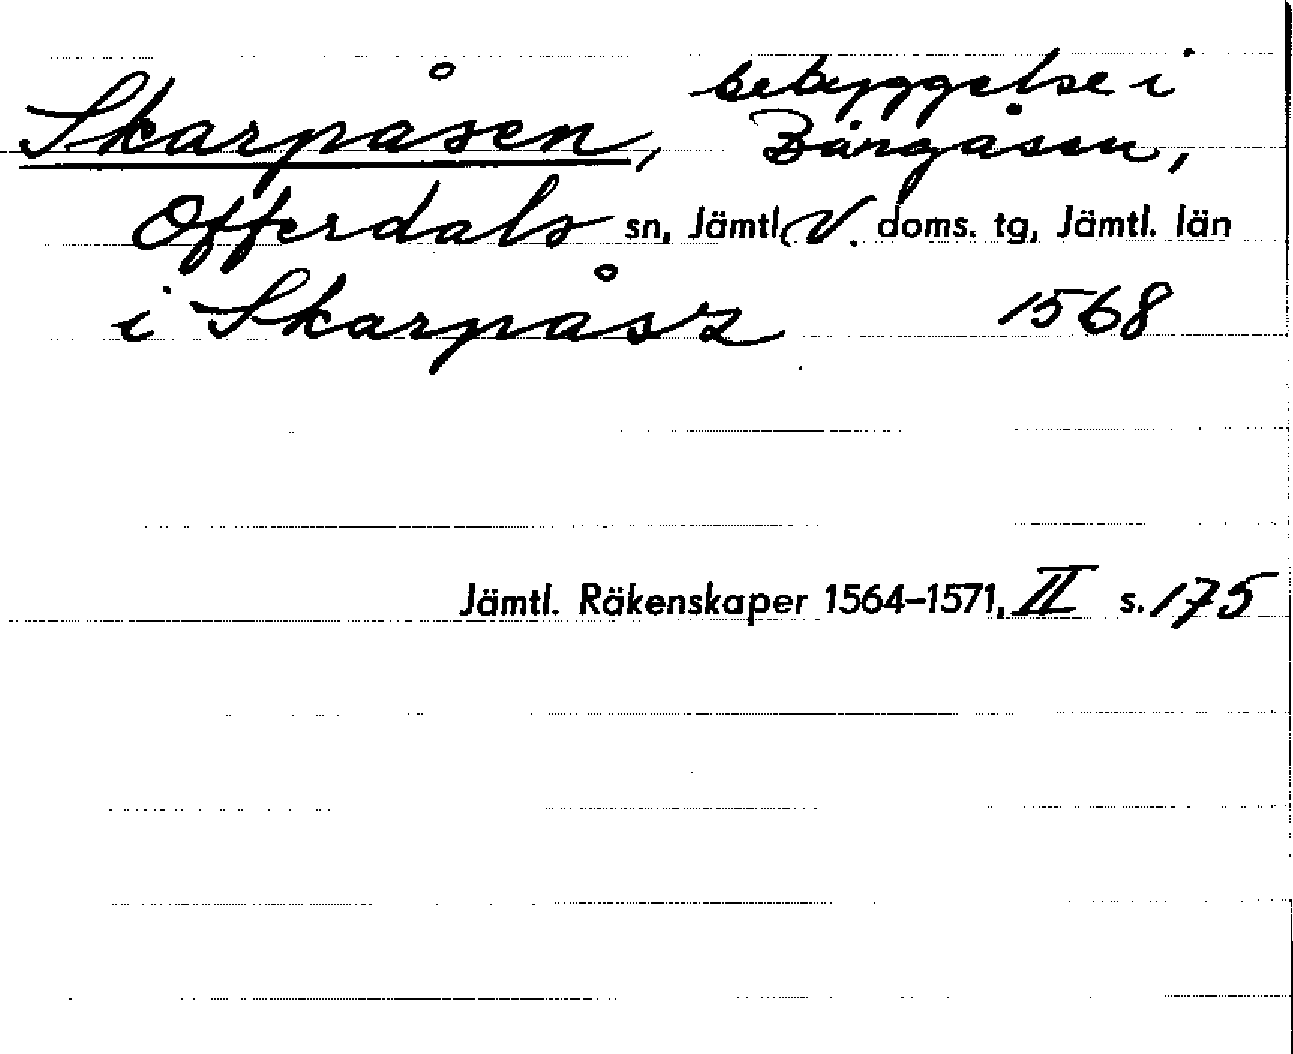 Skarpåsen, bebyggelse i
Bårgåsen,
Offerdals sn, Jämtl. V. doms. tg, Jämtl. län
i Skarpåsz 1568
Jämtl. Räkenskaper 1564-1571, II s. 175